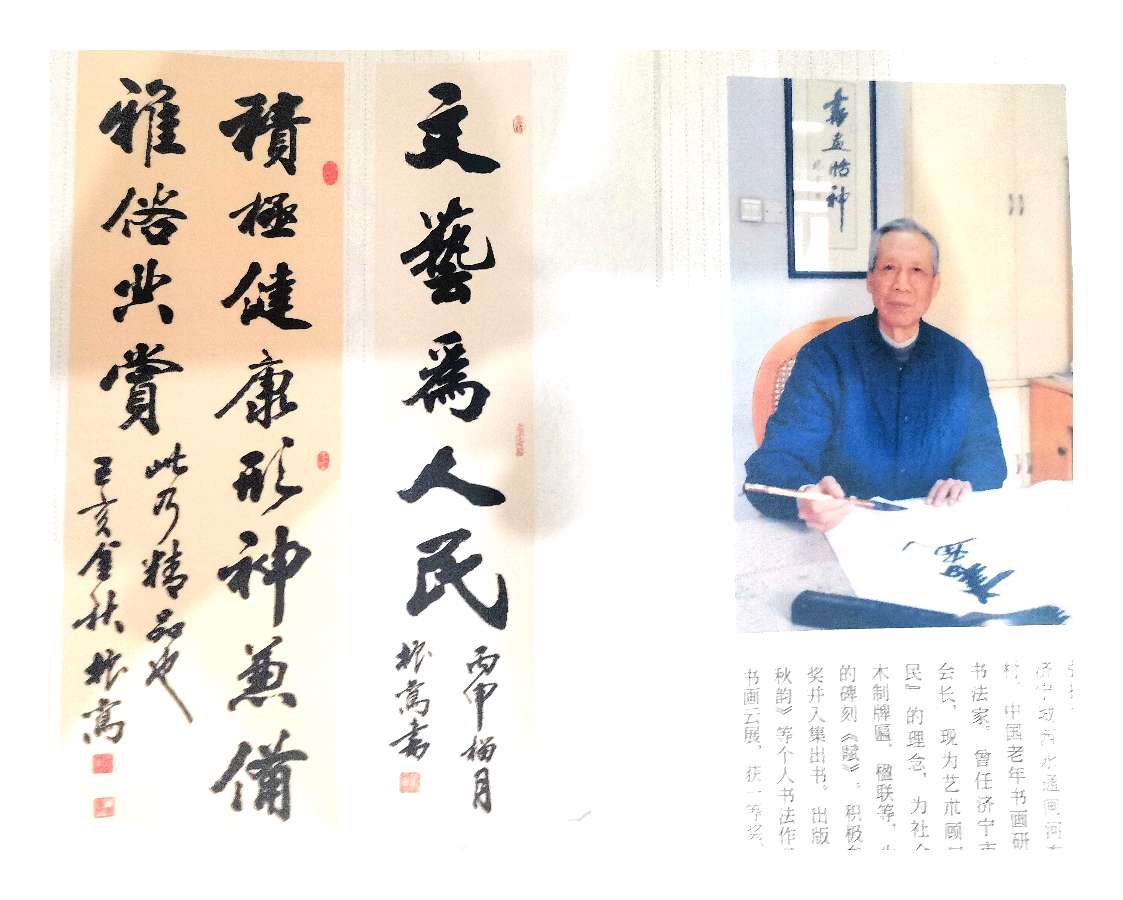 積極健康形神兼備
雅俗共赏
此乃精品也
己亥金秋 振嵩
文藝爲人民
丙申榴月
振嵩書
書画怡神
济宁
村，中国老年书画研
书法家。曾任济宁市
会长，现为艺术顾
民》的理念，为社会
木制牌匾、楹联等，
的碑刻《赋》。积极
奖并入集出书。出版
秋韵》等个人书法作
书画云展，获一等奖。